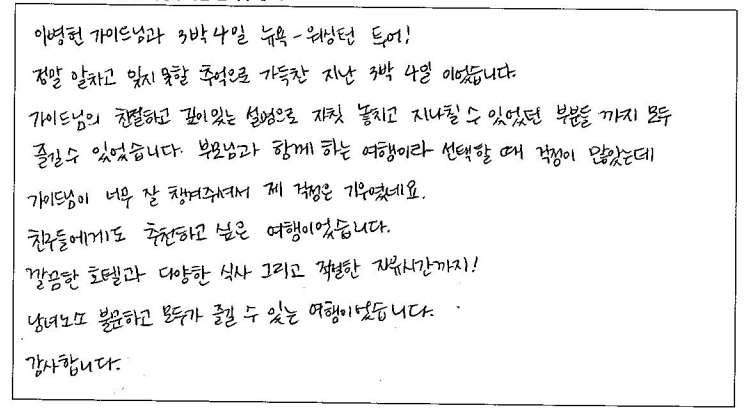 이병헌 가이드님과 3박 4일 뉴욕 - 워싱턴 투어!
정말 알차고 잊지 못할 추억으로 가득찬 지난 3박 4일 이었습니다.
가이드님의 친절하고 깊이있는 설명으로 자칫 놓치고 지나칠 수 있었던 부분들 까지 모두
즐길 수 있었습니다. 부모님과 함께 하는 여행이라 선택할 때 걱정이 많았는데
가이드님이 너무 잘 챙겨주셔서 제 걱정은 기우였네요.
친구들에게도 추천하고 싶은 여행이었습니다.
깔끔한 호텔과 다양한 식사 그리고 적절한 자유시간까지!
남녀노소 불문하고 모두가 즐길 수 있는 여행이었습니다.
감사합니다.